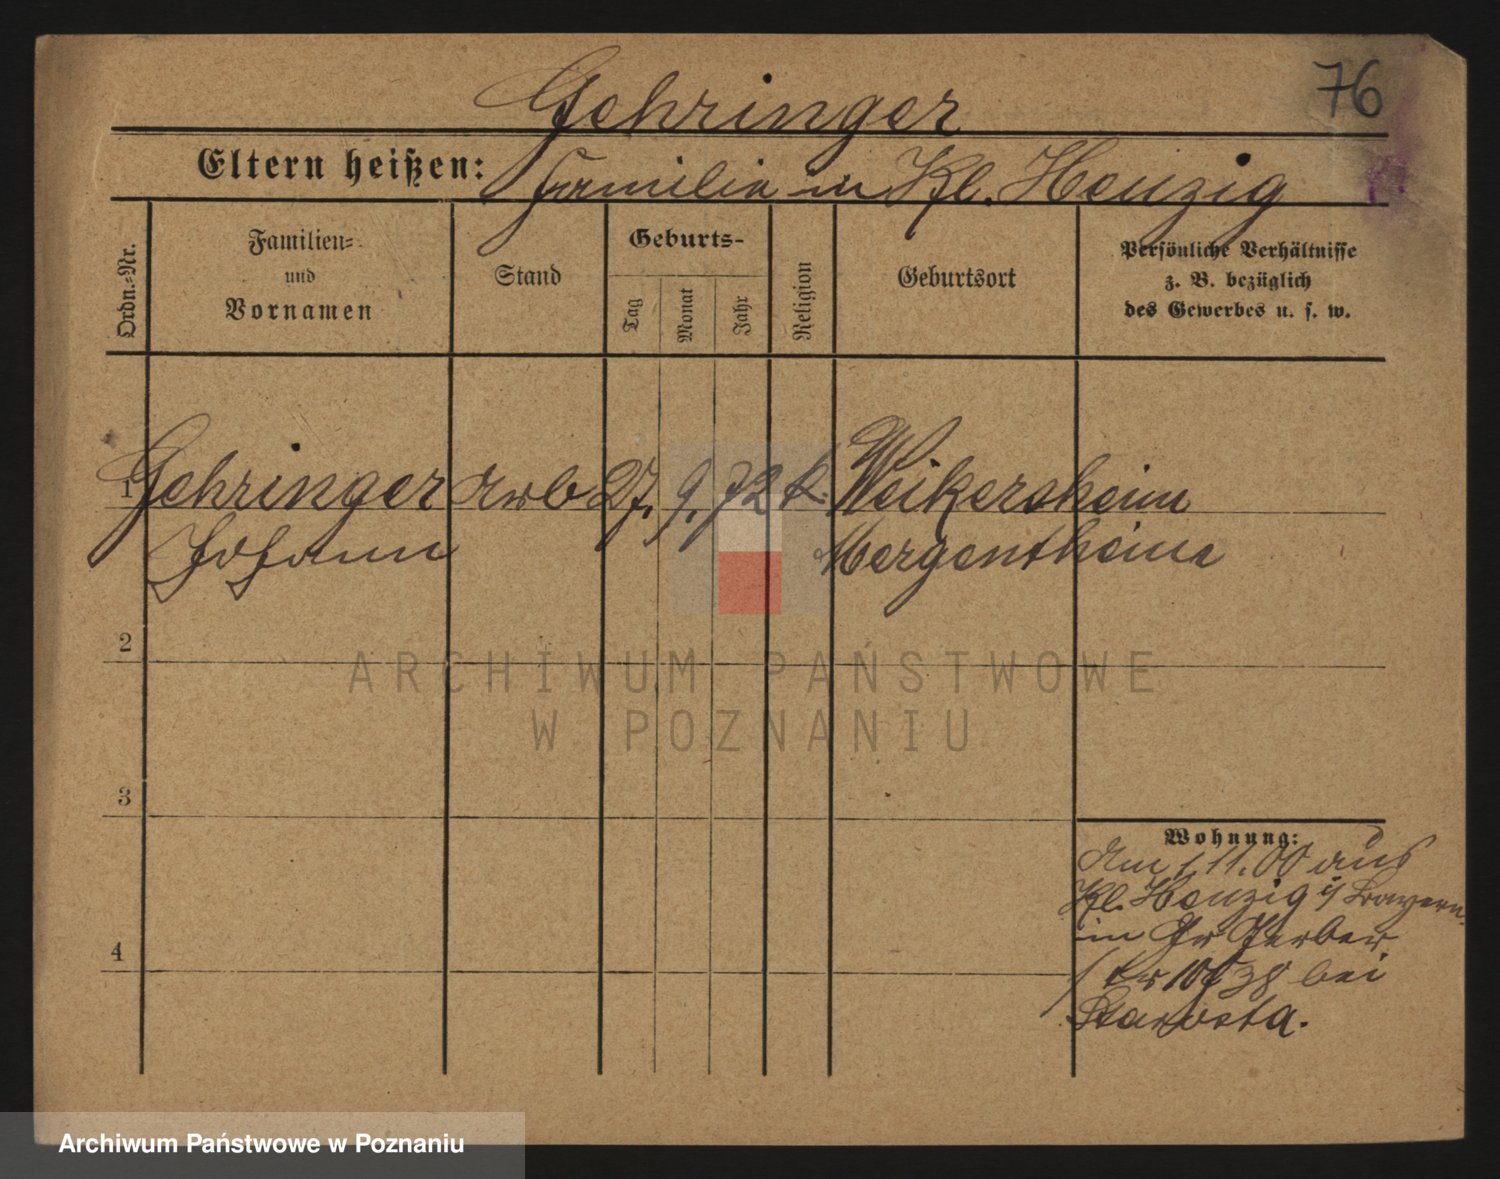 76
Gehringer
Eltern heißen: Familie in Kl. Henzig
Ordn.-Nr.
Familien-
und
Vornamen
Stand
Geburts-
Tag
Monat
Jahr
Religion
Geburtsort
Persönliche Verhältnisse
z. B. bezüglich
des Gewerbes u. s. w.
1 Gehringer Arb 27. 9. 72 k. Weikersheim
Johann Mergentheim
2
ARCHIWUM PAŃSTWOWE
W POZNANIU
3
Wohnung:
Am 1.11.00 aus
Kl. Henzig
in Gr
bei
Starosta.
4
Archiwum Państwowe w Poznaniu